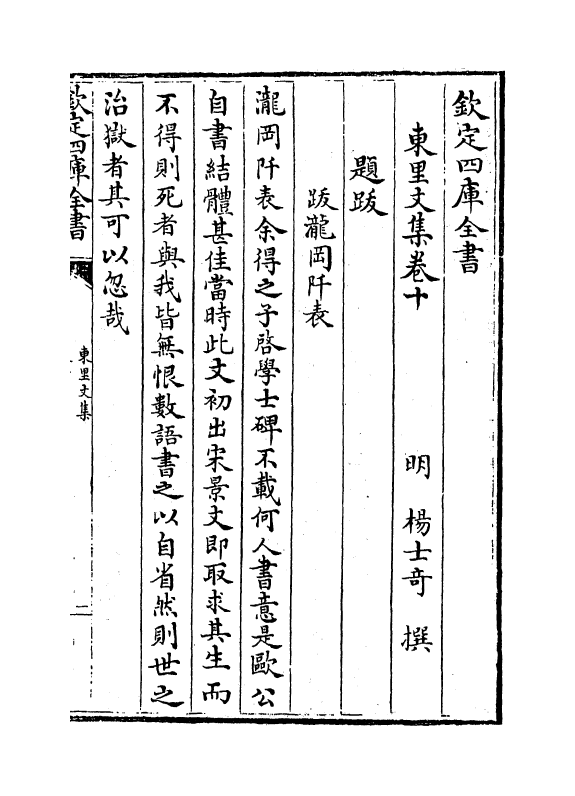 欽定四庫全書
東里文集卷十
明 楊士奇 撰
題跋
跋瀧岡阡表
瀧岡阡表余得之子啓學士碑不載何人書意是歐公
自書結體甚佳當時此文初出宋景文即取求其生而
不得則死者與我皆無恨數語書之以自省然則世之
治獄者其可以忽哉
欽定四庫全書
東里文集
二